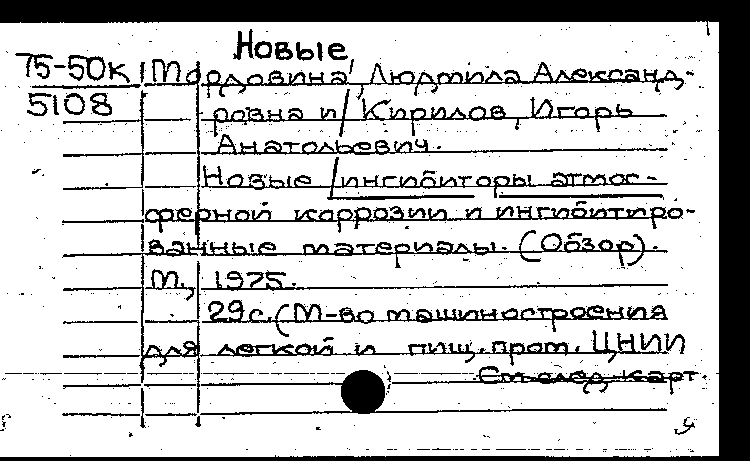 Новые
75-50к Мордовина, Людмила Александ-
5108 ровна и Кирилов, Игорь
Анатольевич.
Новые ингибиторы атмос-
ферной коррозии и ингибитиро-
ванные материалы. (Обзор).
М., 1975.
29с. (М-во машиностроения
для легкой и пищ. пром. ЦНИИ
См. след. карт.